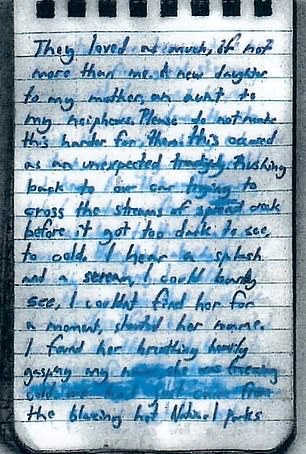 They loved as much, if not
more than me. A new daughter
to my mother, an aunt to
my neiphews. Please do not make
this harder for them this occured
as an unexpected tradgidy. Rushing
back to our car trying to
cross the streams of spread creek
before it got too dark to see,
to cold. I hear a splash
and a scream, I could barely
see, I couldnt find her for
a moment, shouted her name.
I found her breathing heavily
gasping my she was freezing
cold from
the blazeing hot National parks